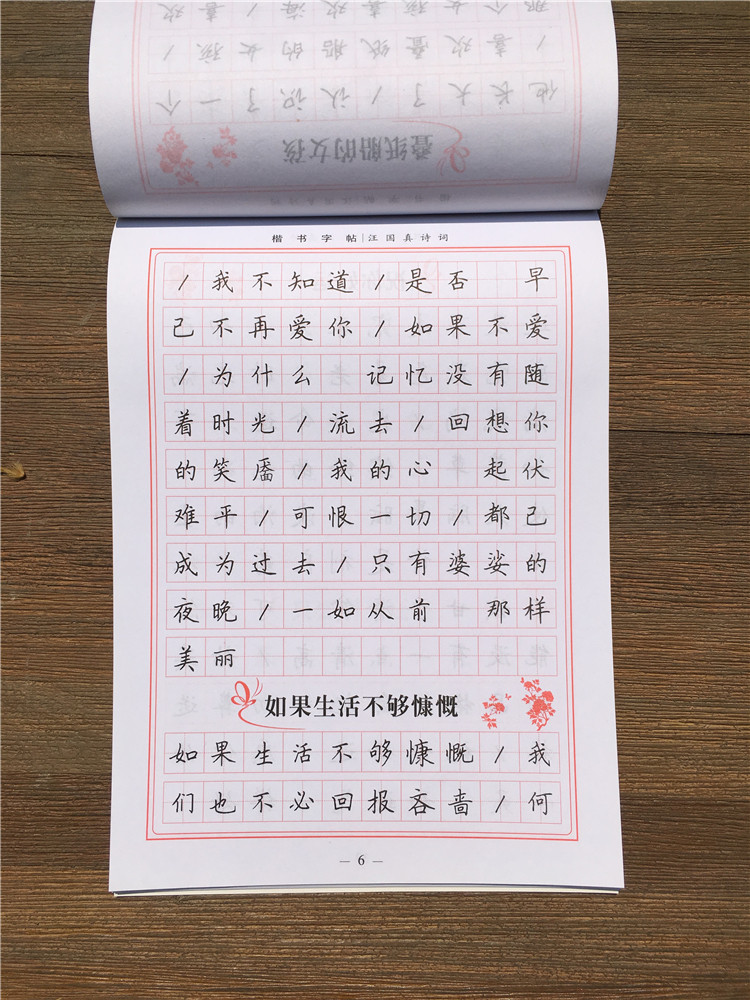 叠纸船的女孩
他长大了/认识了一个
/喜欢叠纸船的女孩/
楷书字帖|汪国真诗词
/我不知道/是否 早
已不再爱你/如果不爱
/为什么 记忆没有随
着时光/流去/回想你
的笑靥/我的心 起伏
难平/可恨一切/都已
成为过去/只有婆娑的
夜晚/一如从前 那样
美丽
如果生活不够慷慨
如果生活不够慷慨/我
们也不必回报吝啬/何
— 6 —